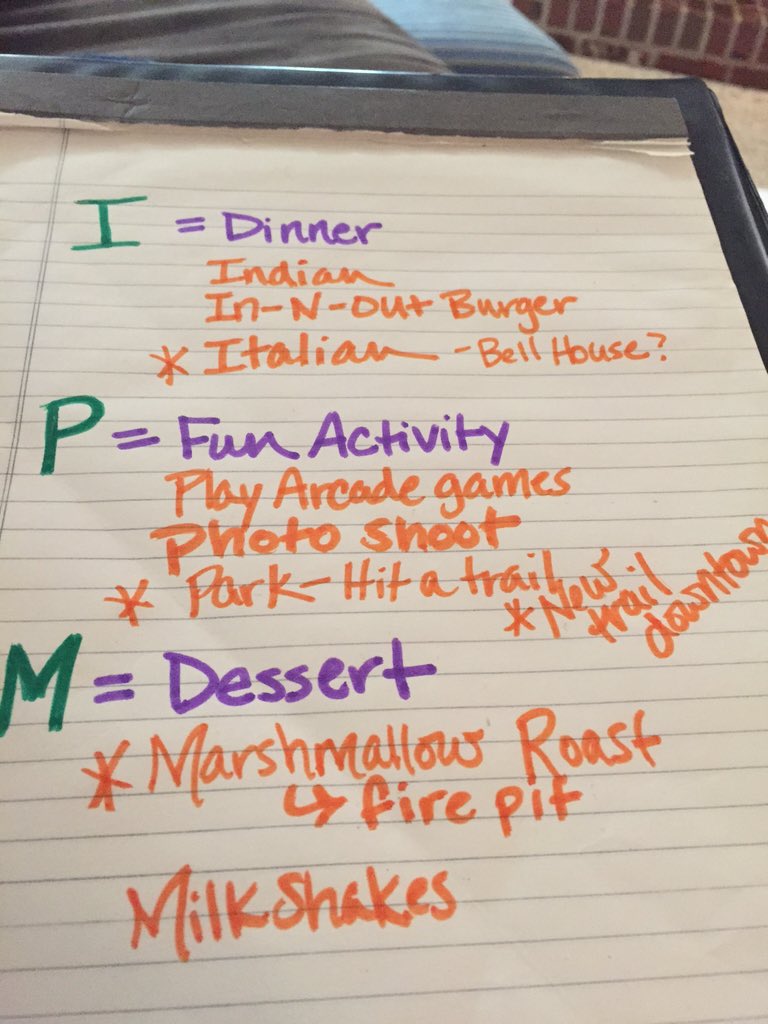 I = Dinner
Indian
In-N-Out Burger
* Italian - Bell House?
P = Fun Activity
Play Arcade games
Photo shoot
* Park - Hit a trail
* New trail downtown
M = Dessert
* Marshmallow Roast
↳ fire pit
Milkshakes